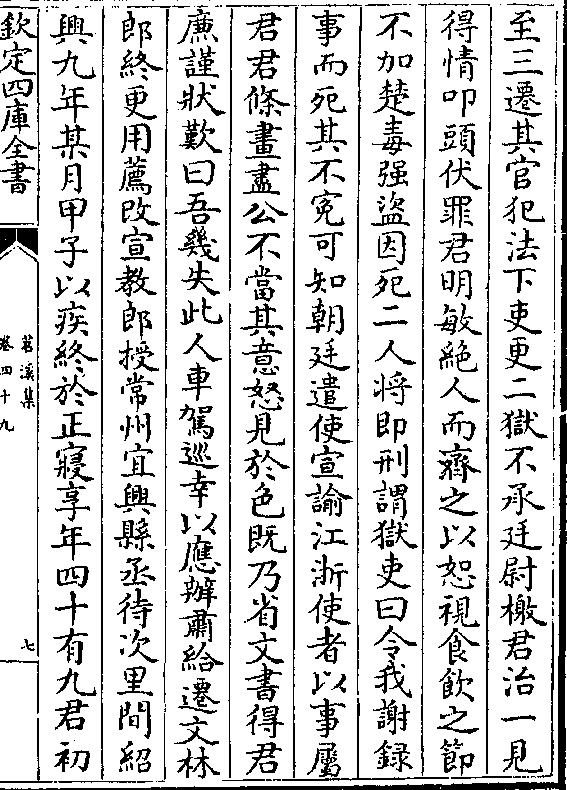 至三遷其官犯法下吏更二獄不承廷尉檄君治一見
得情叩頭伏罪君明敏絶人而齊之以恕視食飲之節
不加楚毒强盜因死二人將即刑謂獄吏曰令我謝録
事而死其不寃可知朝廷遣使宣諭江浙使者以事屬
君君條畫盡公不當其意怒見於色既乃省文書得君
廉謹狀歎曰吾幾失此人車駕巡幸以應辦肅給遷文林
郎終更用薦改宣教郎授常州宜興縣丞待次里閈紹
興九年某月甲子以疾終於正寢享年四十有九君初
欽定四庫全書
苕溪集
卷四十九
七